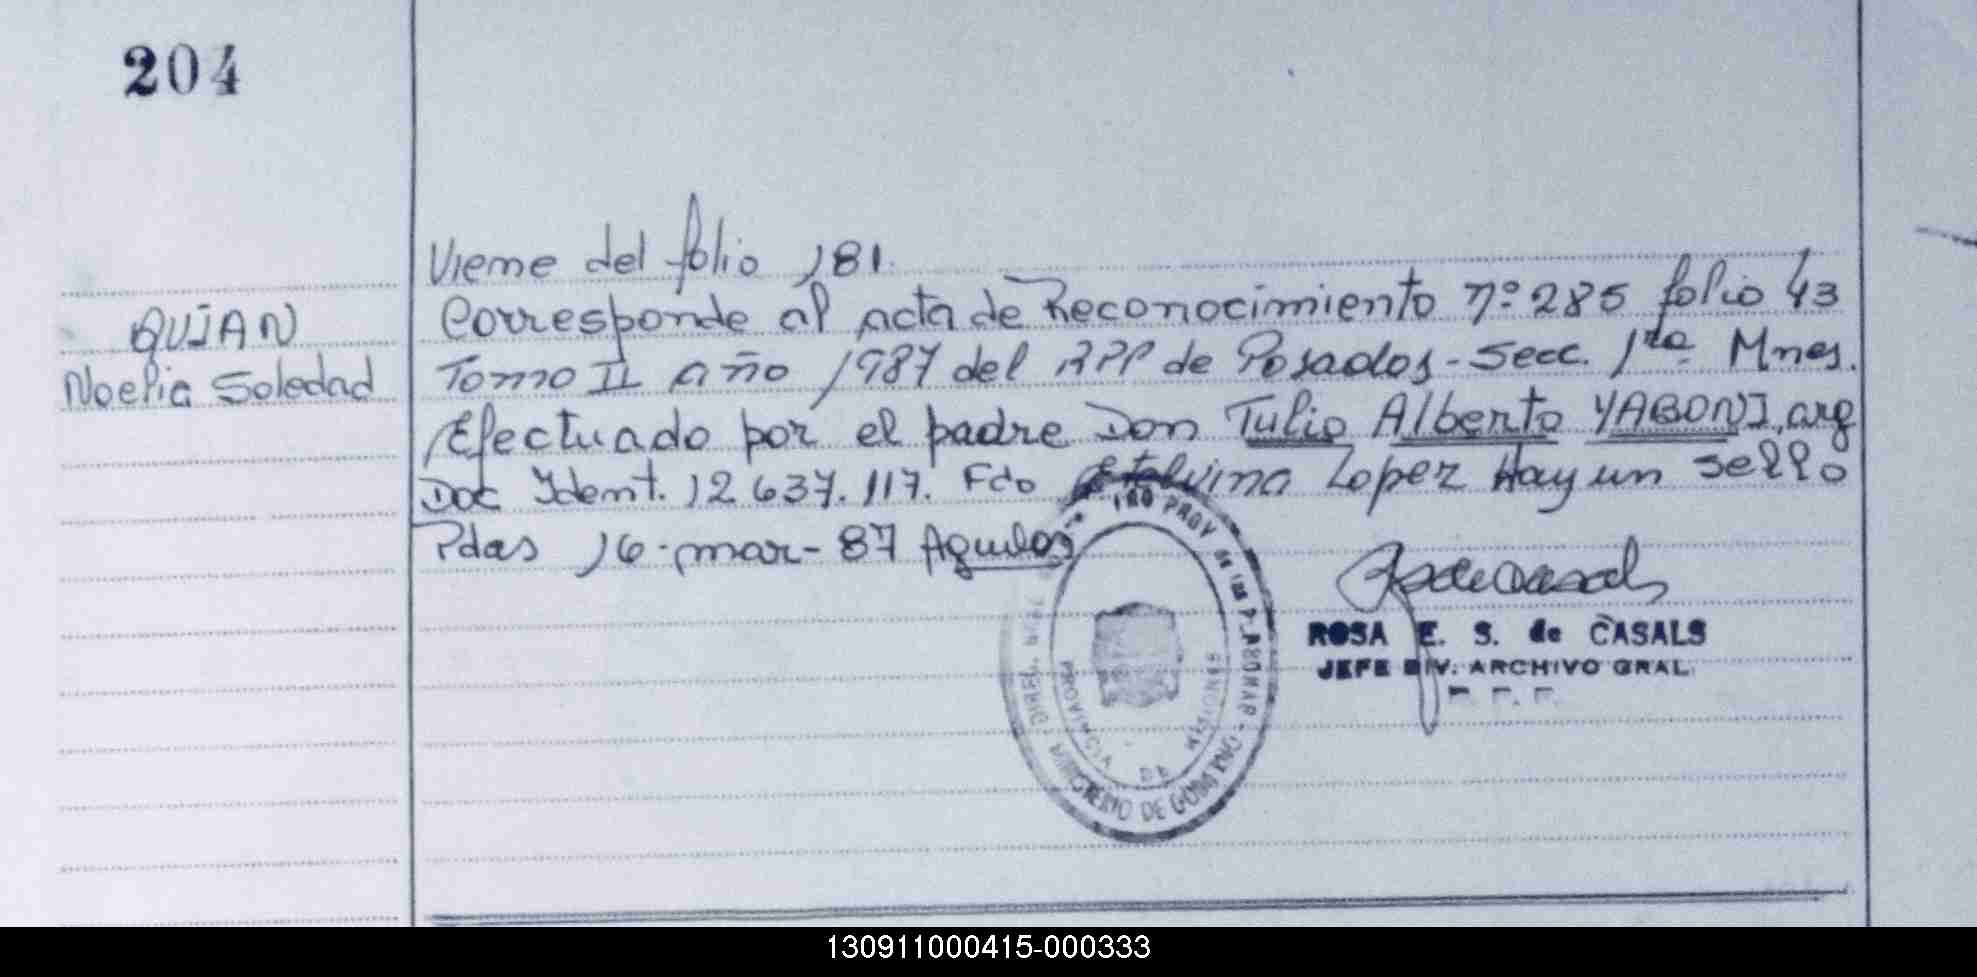 204
Viene del folio 181.
QUIAN
Noelia Soledad
Corresponde al acta de Reconocimiento nº 285 folio 43
Tomo II año 1987 del RPP de Posadas - Secc. 1ra Mnes.
Efectuado por el padre Don Tulio Alberto YABONI, arg
Doc Ident. 12.637.117. Fdo Etelvina Lopez Hay un sello
Pdas 16-mar-87
PROV de las P
MINISTERIO DE GOBIERNO
PROVINCIA DE MISIONES
ROSA E. S. de CASALS
JEFE DIV. ARCHIVO GRAL.
130911000415-000333